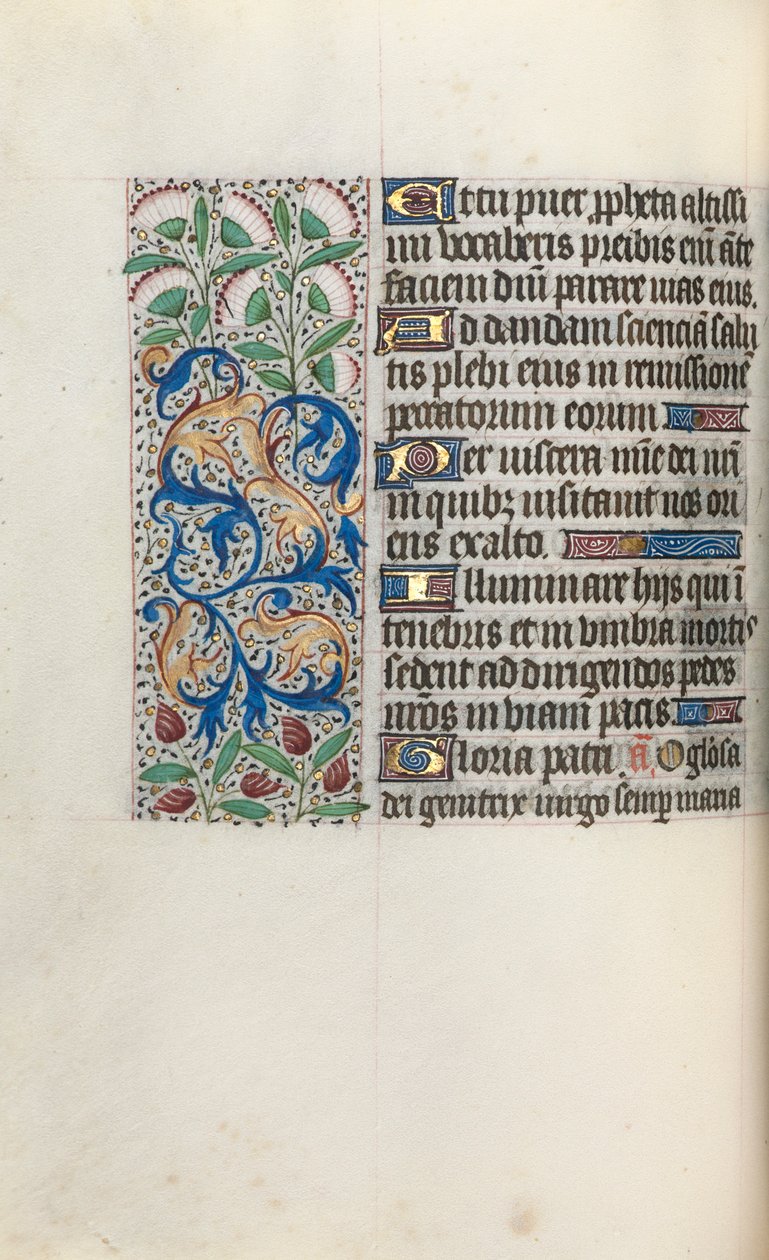 Et tu puer ꝓpheta altissi
mi vocaberis preibis eni᷒ ãte
faciem dñi parare uias eius.
Ad dandam scienciã salu
tis plebi eius in remissionẽ
peccatorum eorum
Per uiscera mĩe dei nr̃i
in quibꝫ uisitauit nos ori
ens ex alto.
Illuminare hijs qui ĩ
tenebris et in vmbra mortis
sedent ad dirigendos pedes
nr̃os in viam pacis.
Gloria patri. ã. O glõsa
dei genitrix uirgo semꝑ maria